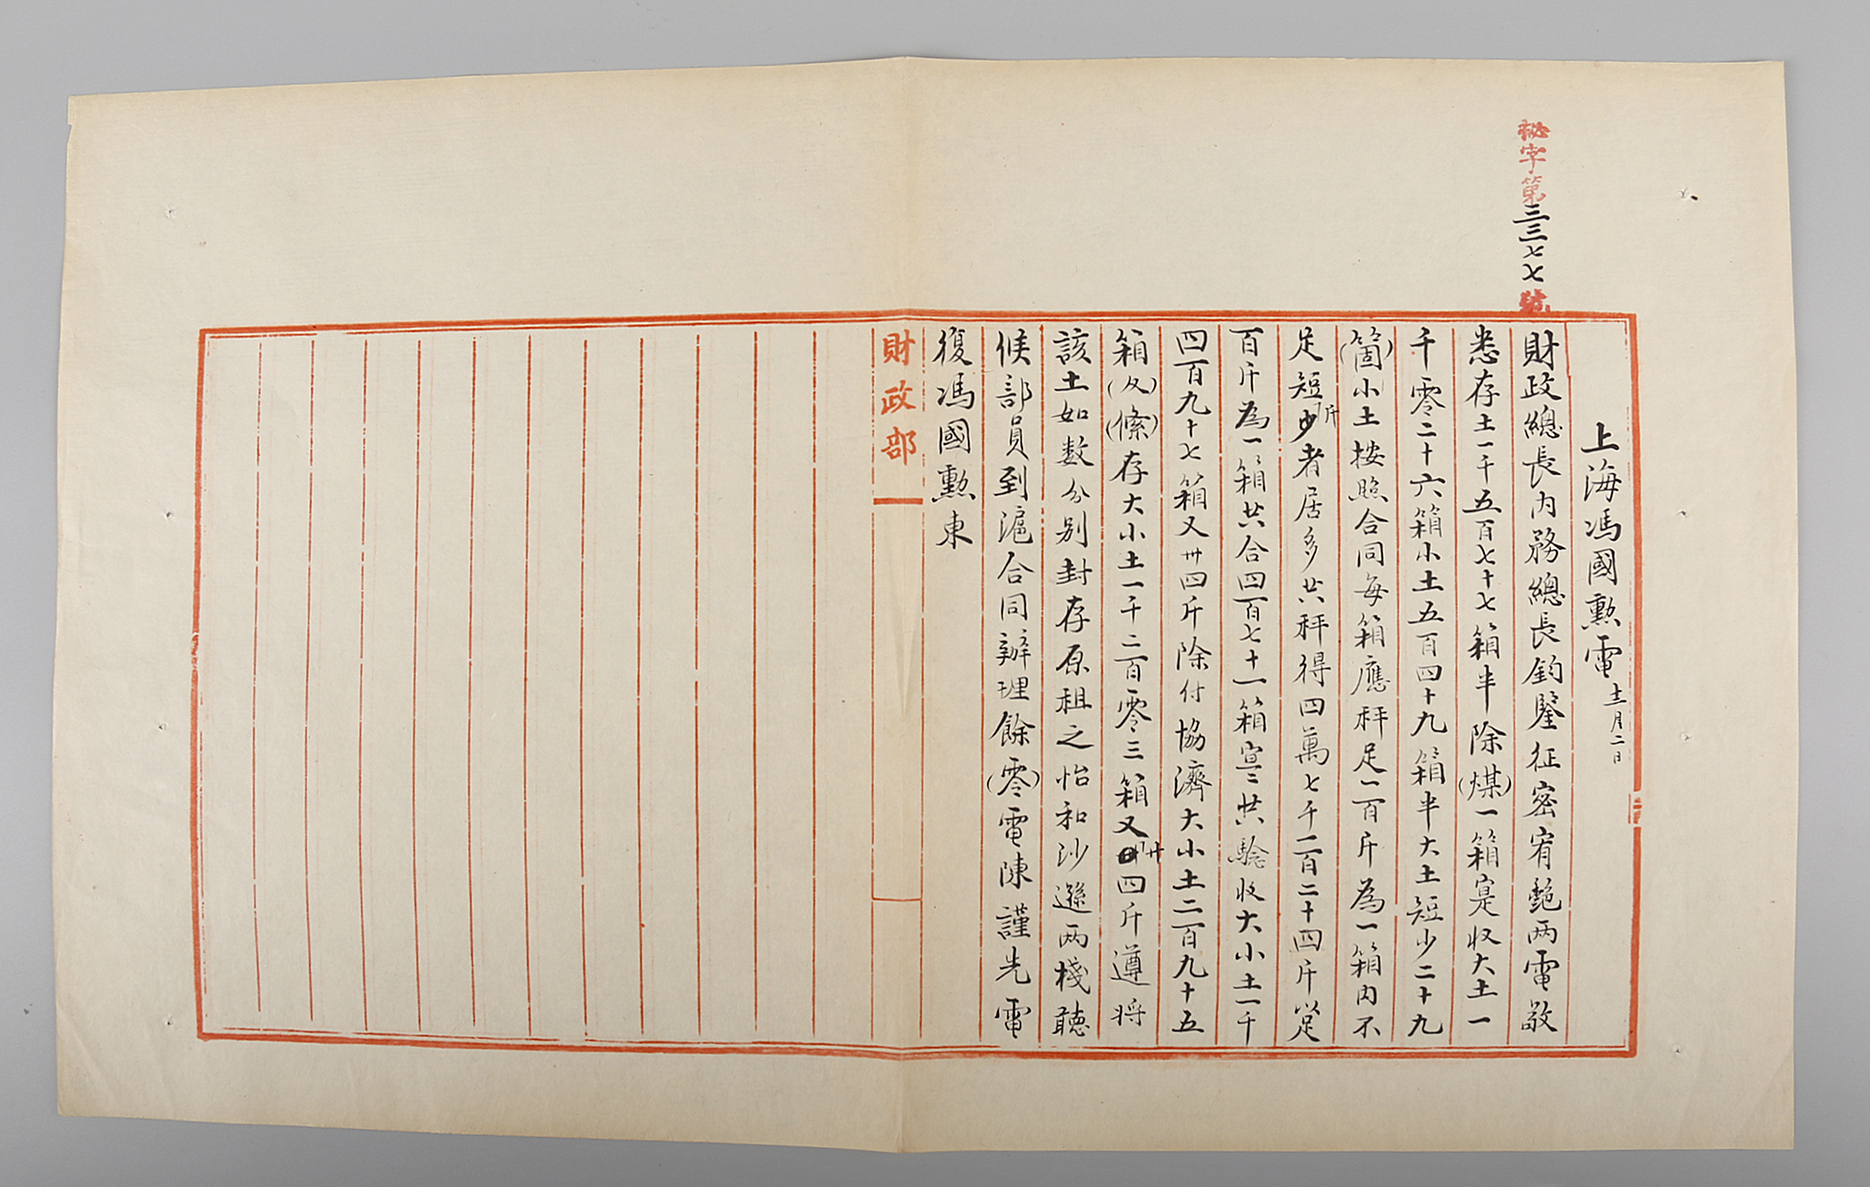 秘字第三三七七號
上海馮國勲電十二月二日
財政總長內務總長鈞鑒征密宥艷兩電敬
悉存土一千五百七十七箱半除(煤)一箱寔收大土一
千零二十六箱小土五百四十九箱半大土短少二十九
(箇)小土按照合同每箱應秤足一百斤為一箱內不
足短斤少者居多共秤得四萬七千一百二十四斤以足
百斤為一箱共合四百七十一箱寔二共驗收大小土一千
四百九十七箱又卅四斤除付協濟大小土二百九十五
箱(及)(條)存大小土一千二百零三箱又廿四斤遵將
該土如数分别封存原租之怡和沙遜兩棧聽
候部員到滬合同辦理餘(零)電陳謹先電
復馮國勲東
財政部